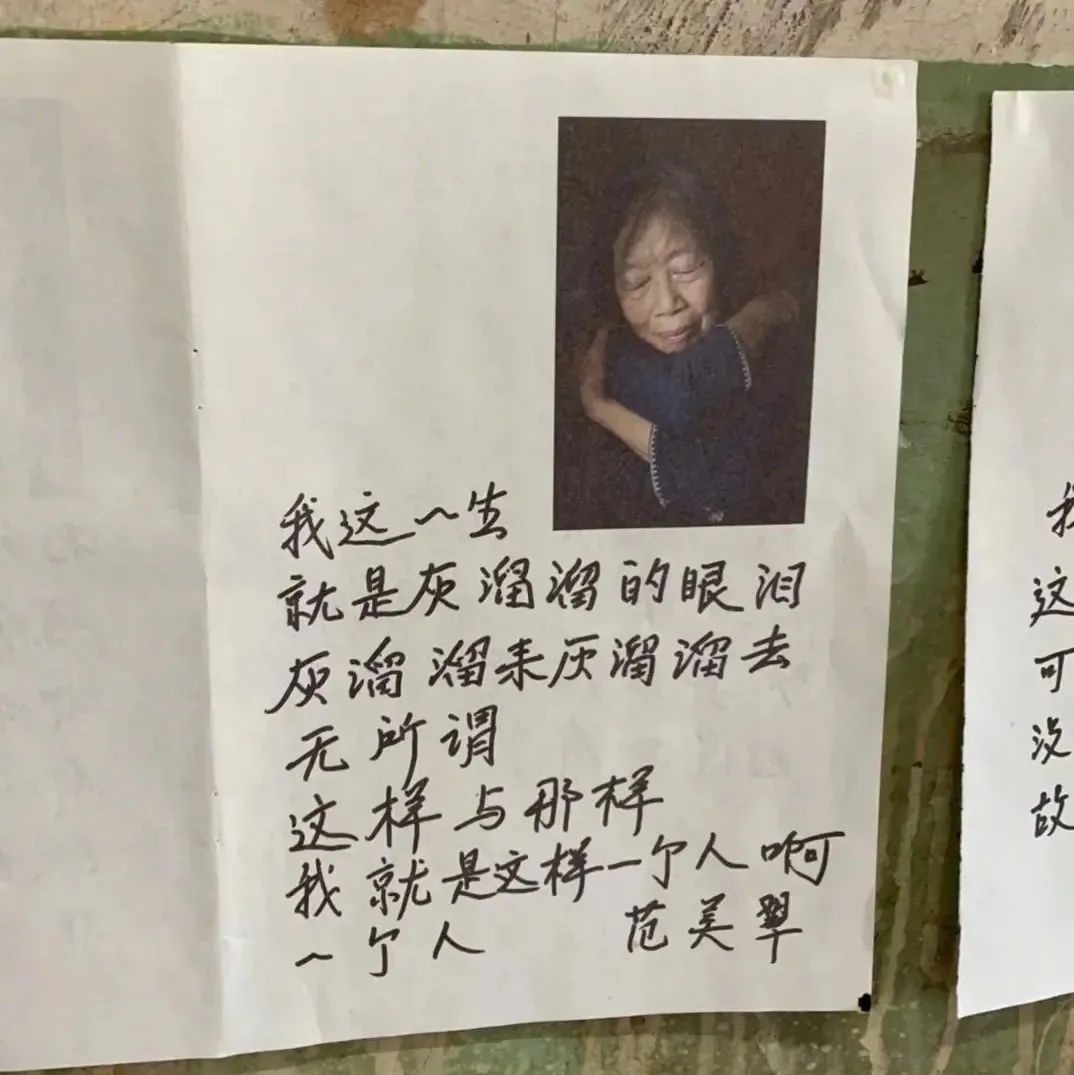 我这一生
就是灰溜溜的眼泪
灰溜溜来灰溜溜去
无所谓
这样与那样
我就是这样一个人啊
一个人 范美翠
我
这
可
没
故